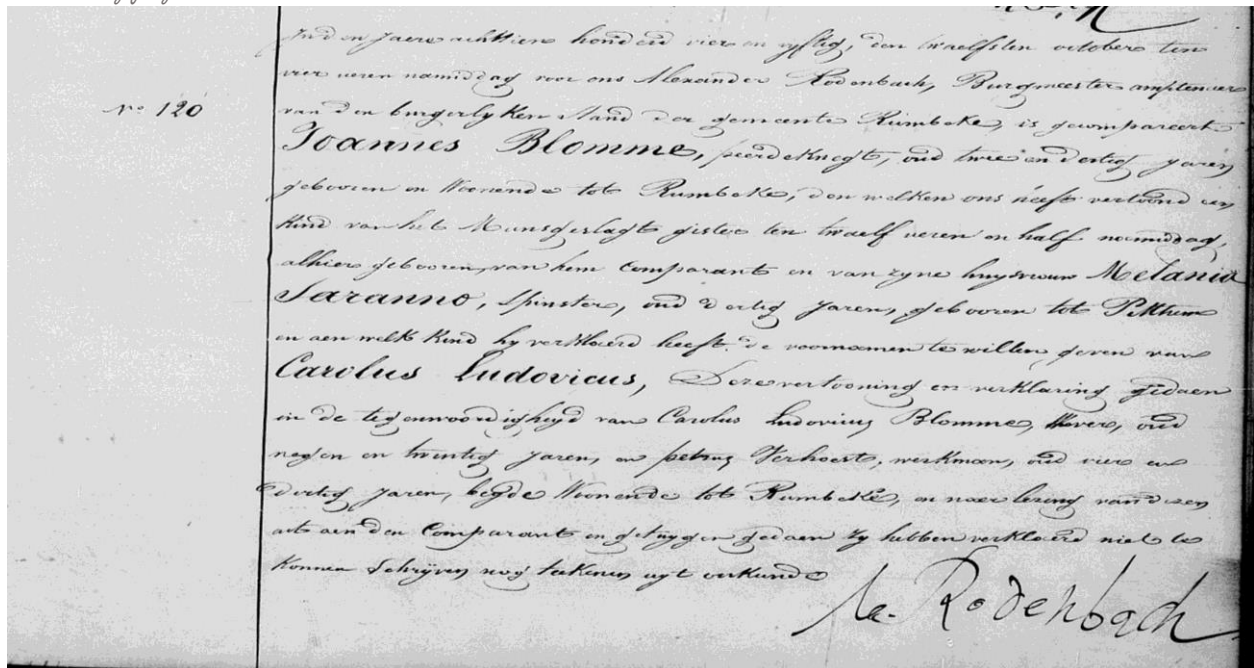 Nº 120
In den jaere achttien honderd vier en vyftig, den twaelfsten october ten
vier ueren namiddag voor ons Alexander Rodenbach, Burgmeester amptenaer
van den burgerlyken Stand der gemeente Rumbeke, is gecompareert
Joannes Blomme, peerdeknegt, oud twee en dertig jaren
gebooren en Woonende tot Rumbeke, den welken ons heeft vertoond een
Kind van het Mansgeslagt gister ten twaelf ueren en half namiddag,
alhier gebooren, van hem Comparant en van zyne huysvrouw Melania
Saranno, Spinster, oud dertig jaren, gebooren tot Pitthem
en aen welk Kind hy verklaerd heeft de voornamen te willen geven van
Carolus Ludovicus, Deze vertooning en verklaring gedaen
in de tegenwoordigheyd van Carolus Ludovicus Blomme, Wever, oud
negen en twintig jaren, en petrus Verhoest, werkman, oud vier en
dertig jaren, beyde Woonende tot Rumbeke, en naer lezing van dezen
act aen den Comparant en getuygen gedaen zy hebben verklaerd niet te
Konnen Schryven nog teekenen uyt oorkunde
Rodenbach